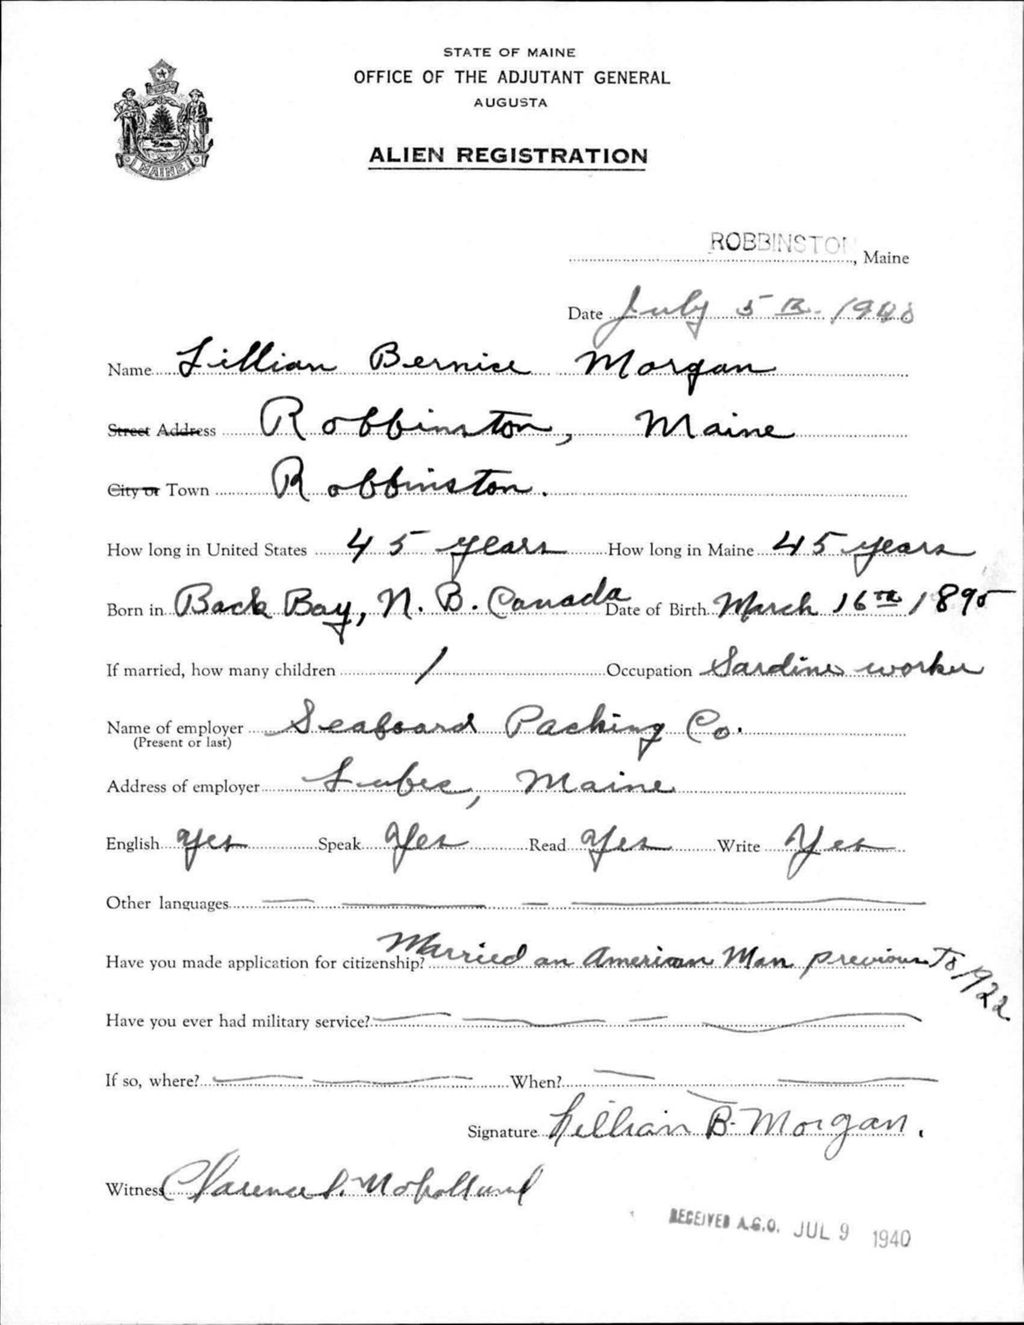 STATE OF MAINE
OFFICE OF THE ADJUTANT GENERAL
AUGUSTA
MAINE
ALIEN REGISTRATION
ROBBINSTON, Maine
Date July 5th. 1940
Name Lillian Bernice Morgan
Street Address Robbinston, Maine
City or Town Robbinston.
How long in United States 45 years How long in Maine 45 years
Born in Back Bay, N. B. Canada Date of Birth March 16th 1895
If married, how many children 1 Occupation Sardine worker
Name of employer Seaboard Packing Co.
(Present or last)
Address of employer Lubec, Maine
English yes Speak Yes Read Yes Write Yes
Other languages
Have you made application for citizenship? Married an American Man previous To 1922
Have you ever had military service?
If so, where? When?
Signature Lillian B. Morgan.
Witness Clarence
RECEIVED A.G.O. JUL 9 1940